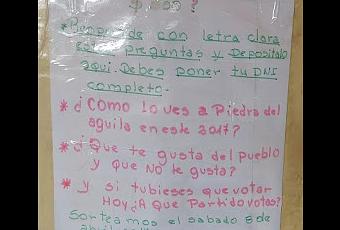 *Responde con letra clara
estas preguntas y Depositalo
aqui. Debes poner tu DNI
completo.
* ¿Como lo ves a Piedra del
aguila en este 2017?
* ¿Que te gusta del pueblo
y que NO te gusta?
* y si tubieses que votar
HOY ¿A que Partido votas?
Sorteamos el sabado 8 de
abril